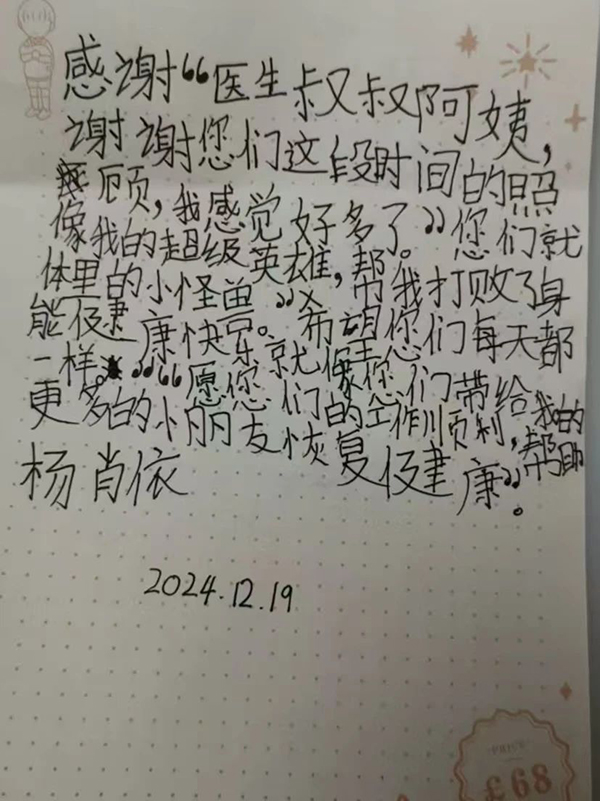 感谢“医生叔叔阿姨,
谢谢您们这段时间的照
顾,我感觉好多了。”您们就
像我的超级英雄,帮我打败了身
体里的小怪兽。”希望你们每天都
能健康快乐就像您们带给我的
一样。”“愿您们的工作顺利,帮助
更多的小朋友恢复健康”。
杨肖依
2024.12.19
PRICE
£68